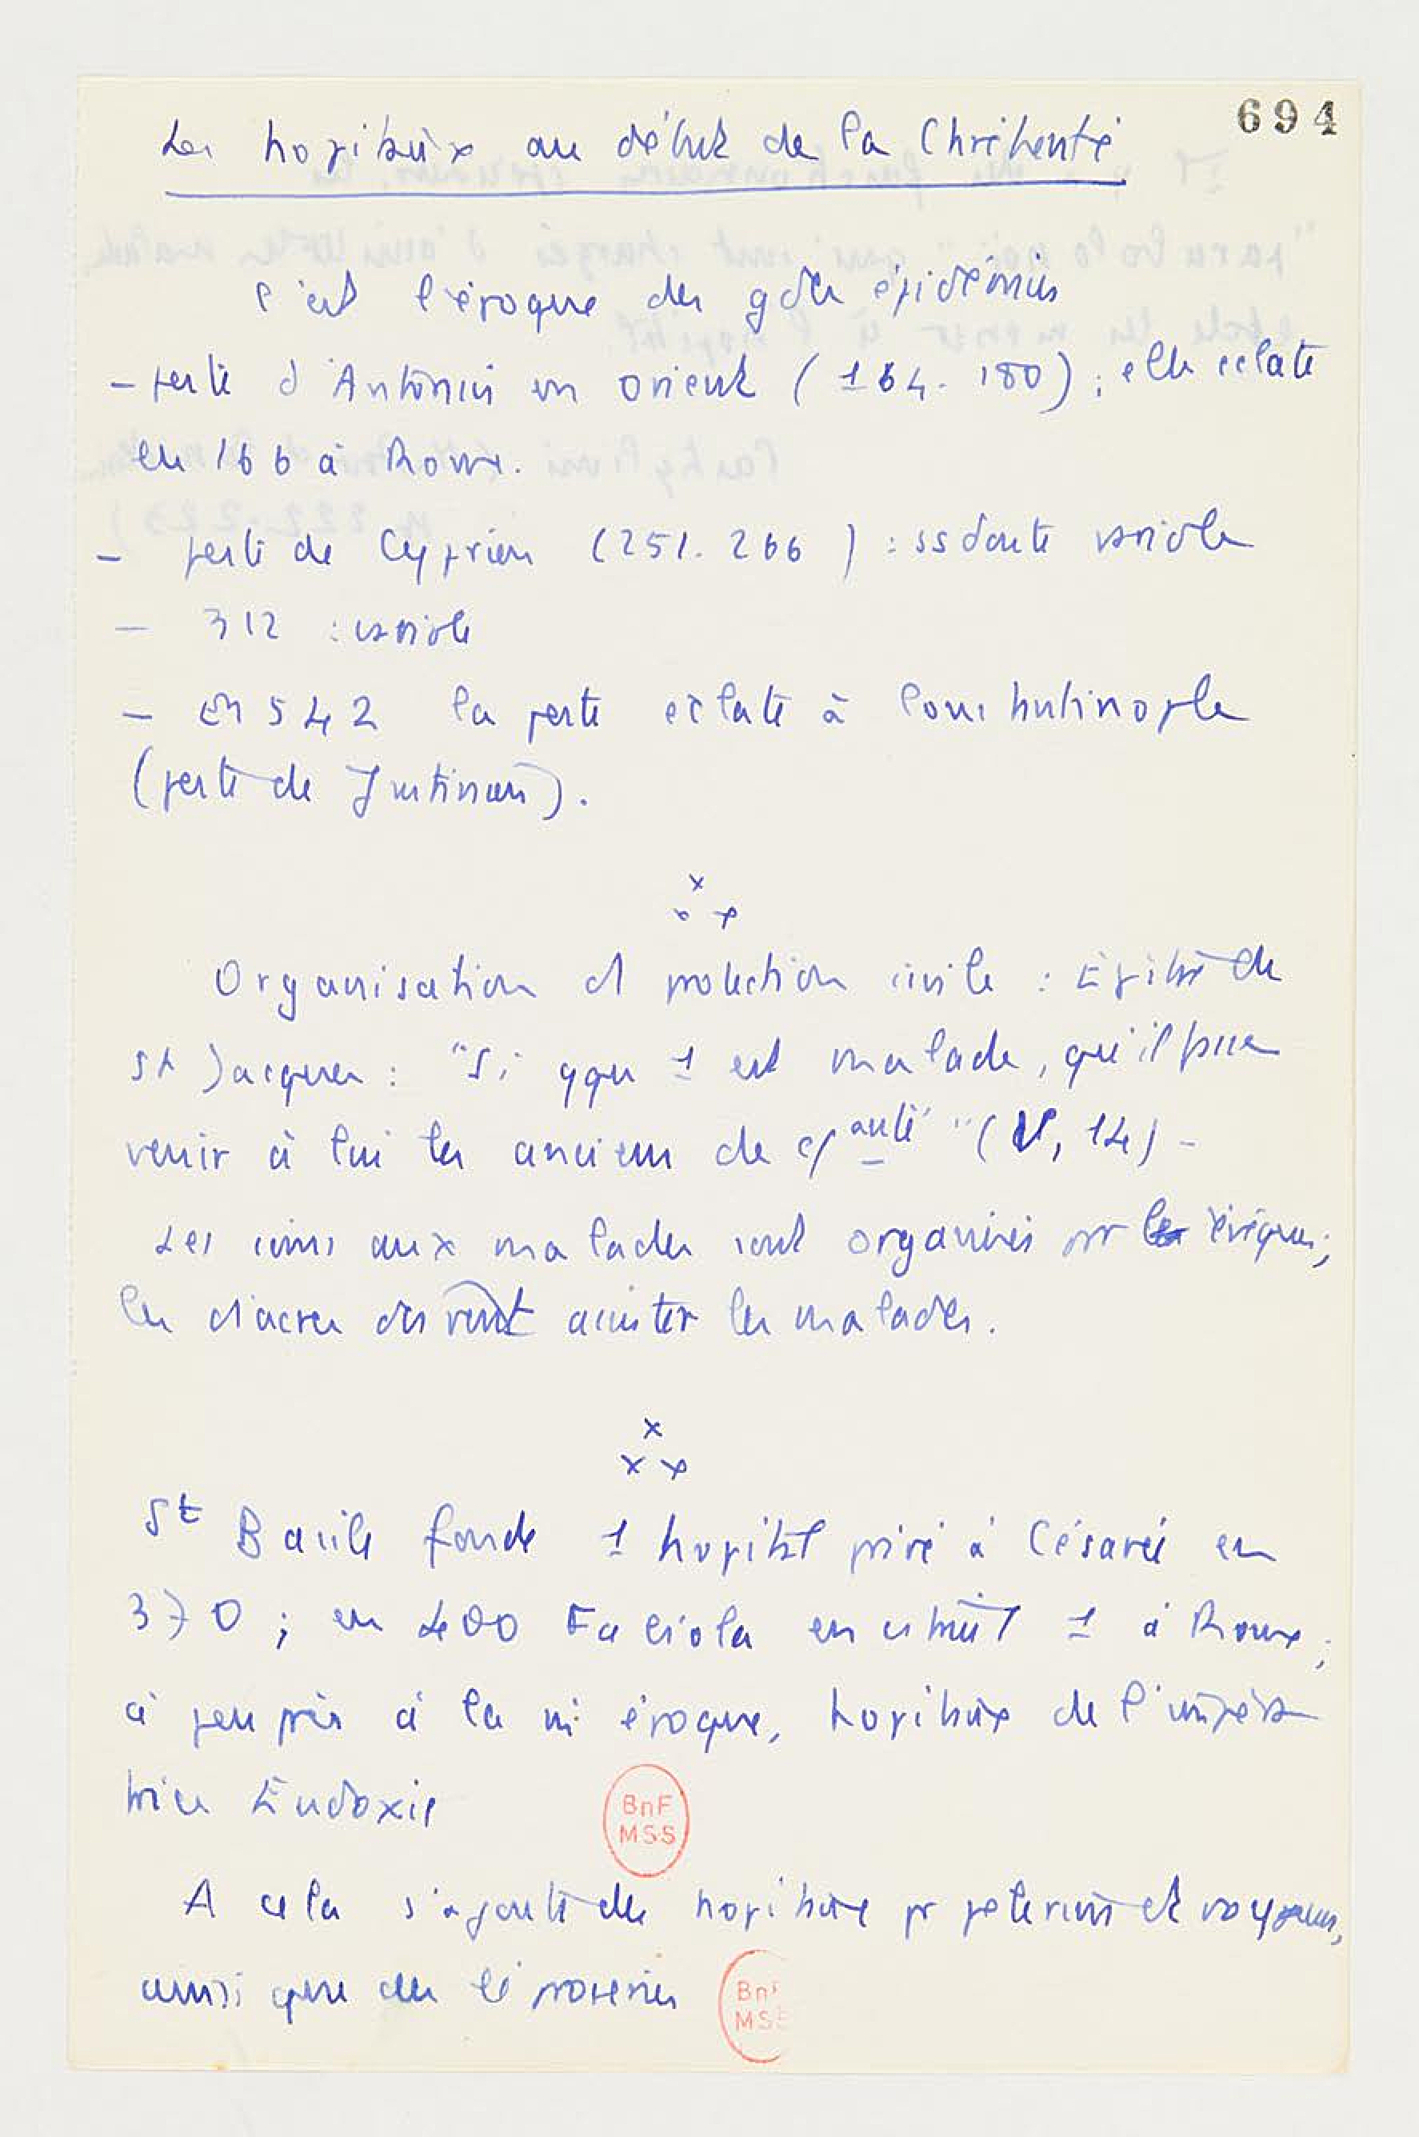 694
Les hopitaux au début de la Chrétienté
C'est l'époque des gdes épidémies
– peste d'Antonin en orient (164-180) ; elle éclate
en 166 à Rome.
– peste de Cyprien (251-266) : ss doute variole
– 312 : variole
– en 542 la peste éclate à Constantinople
(peste de Justinien).
x
x x
Organisation et protection civile : Epitre de
St Jacques : "Si qqu 1 est malade, qu'il fasse
venir à lui les anciens de cauté" (V, 14) -
Les soins aux malades sont organisés par les évêques ;
les diacres doivent assister les malades.
x
x x
St Basile fonde 1 hopital privé à Césarée en
370 ; en 400 Fabiola en construit 1 à Rome ;
à peu près à la m époque, hopitaux de l'impéra
trice Eudoxie
BnF
MSS
A cela s'ajoute des hopitaux pr pelerins et voyageurs,
ainsi que des léproseries
BnF
MSS